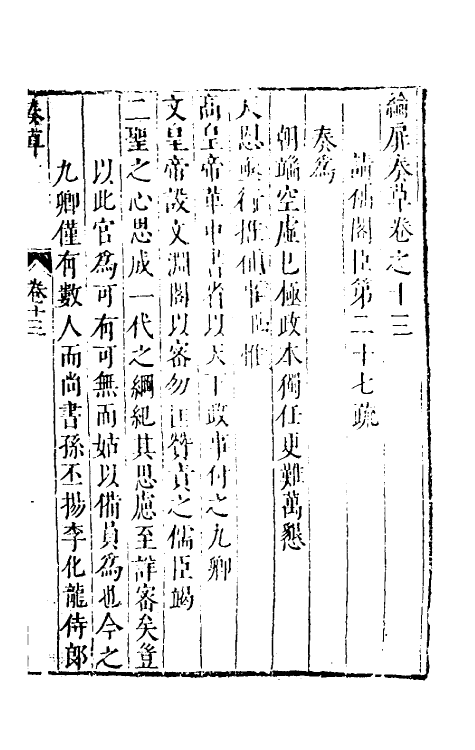 綸扉奏草卷之十三
請補閣臣第二十七疏
奏爲
朝端空虛已極政本獨任更難萬懇
天恩亟行推補事臣惟
高皇帝革中書省以天下政事付之九卿
文皇帝設文淵閣以審勿匡贊責之儒臣竭
二聖之心思成一代之綱紀其思慮至詳審矣豈
以此官爲可有可無而姑以備員爲也今之
九卿僅有數人而尚書孫丕揚李化龍侍郎
奏草
卷十三